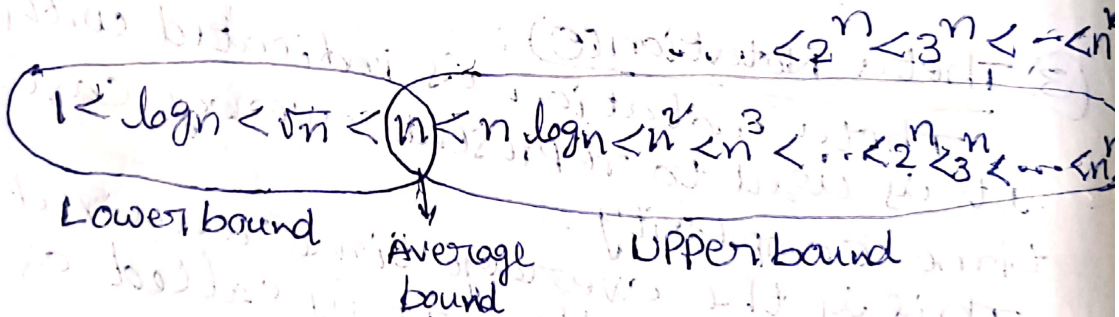 ... < 2^n < 3^n < -- < n^n
1 < log n < √n < n < n log n < n^2 < n^3 < ... < 2^n < 3^n < ---- < n^n
Lower bound
Average
bound
Upper bound